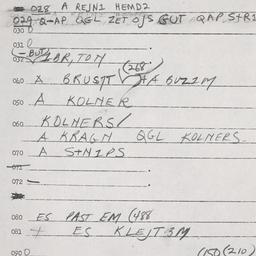 028 A REJN1 HEMD2
029 Q-AP QGL ZET OJS GUT QAP S+R1
030 0
031 0
032 (-BUT) IBR, TOM
(268)
040 A BRUSTT HA BUZZM
050 A KOLNER
060 KOLNERS/
A KRAGN QGL KOLNERS
070 A S+N1PS
071
072
080 ES PAST EM (488
081 + ES KLEJT3M
090 0 (150 (210)